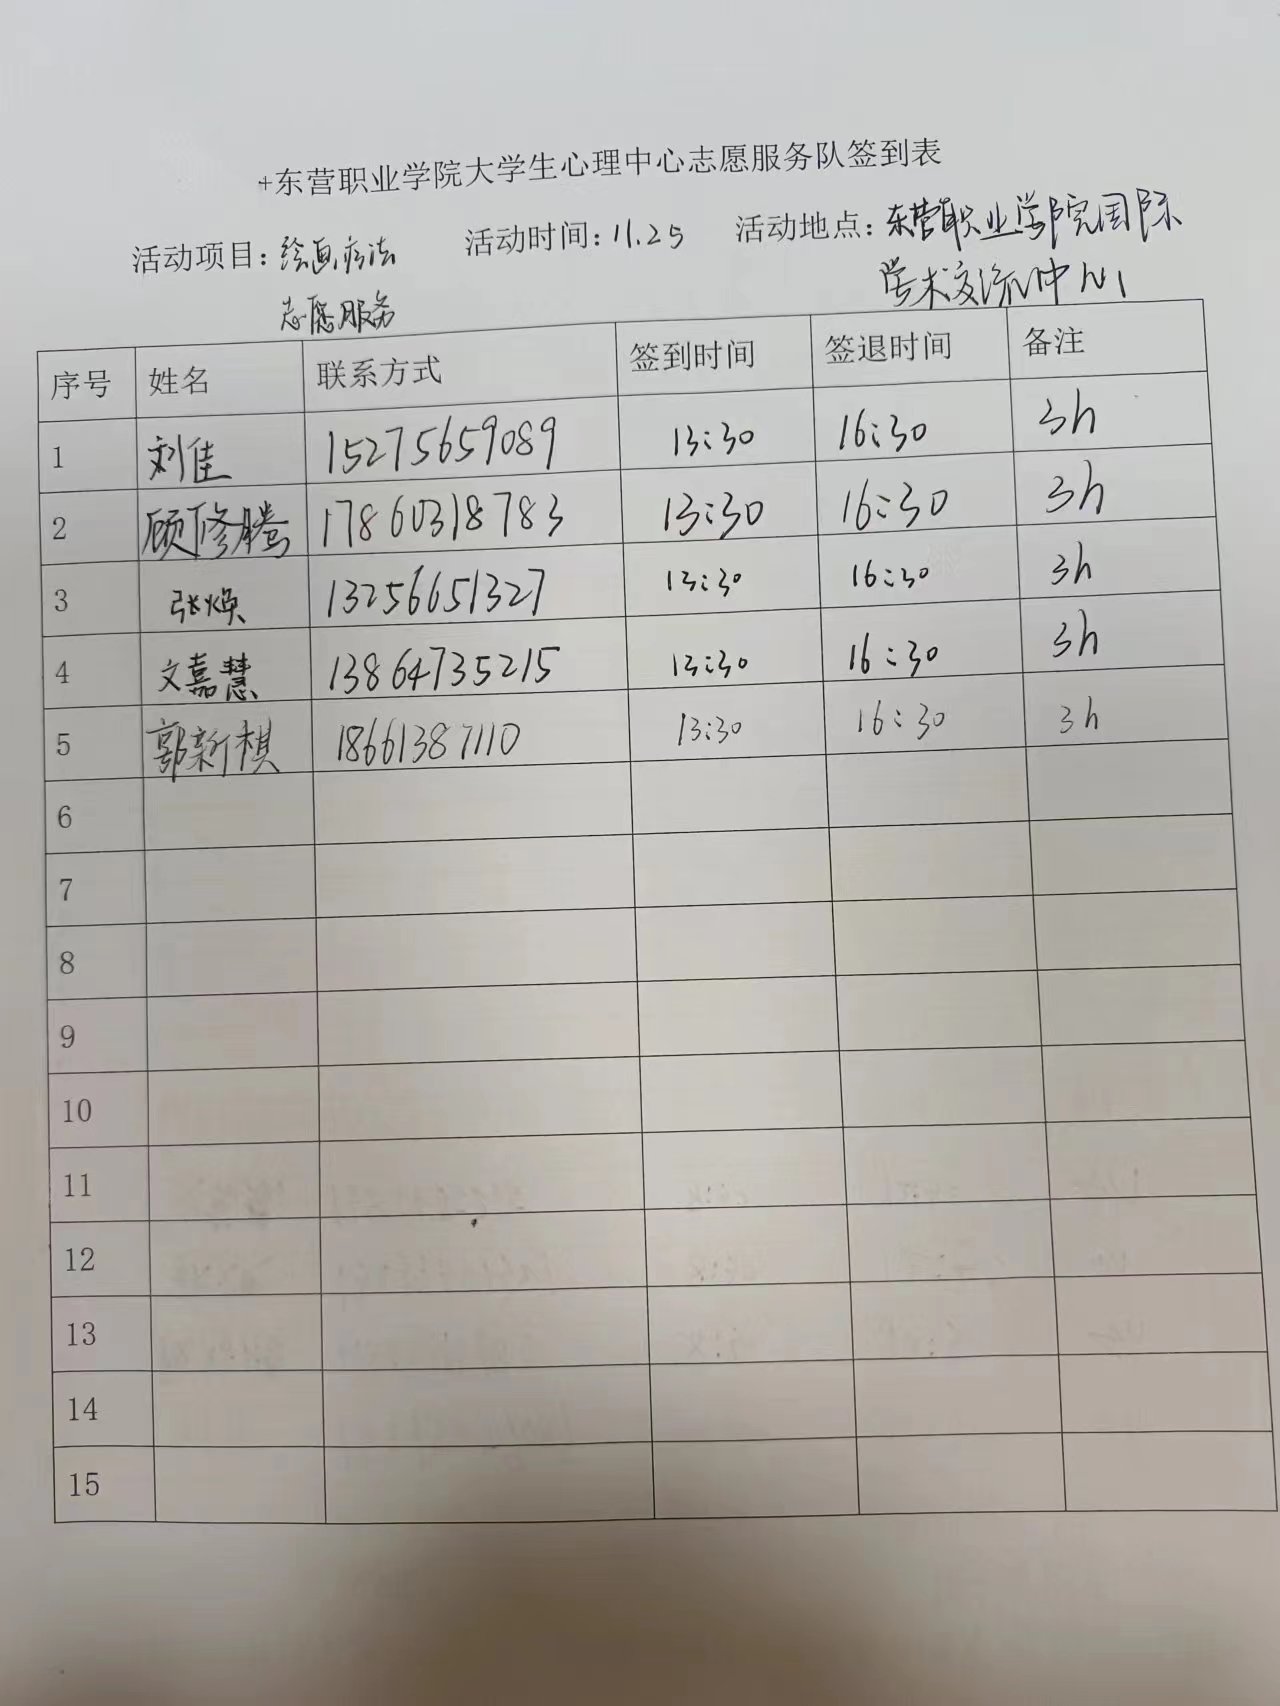 +东营职业学院大学生心理中心志愿服务队签到表
活动项目：绘画疗法 活动时间：11.25 活动地点：东营职业学院国际
志愿服务 学术交流中心
序号 姓名 联系方式 签到时间 签退时间 备注
1 刘佳 15275659089 13:30 16:30 3h
2 顾修腾 17860318783 13:30 16:30 3h
3 张焕 13256651327 13:30 16:30 3h
4 文嘉慧 13864735215 13:30 16:30 3h
5 郭新棋 18661387110 13:30 16:30 3h
6
7
8
9
10
11
12
13
14
15